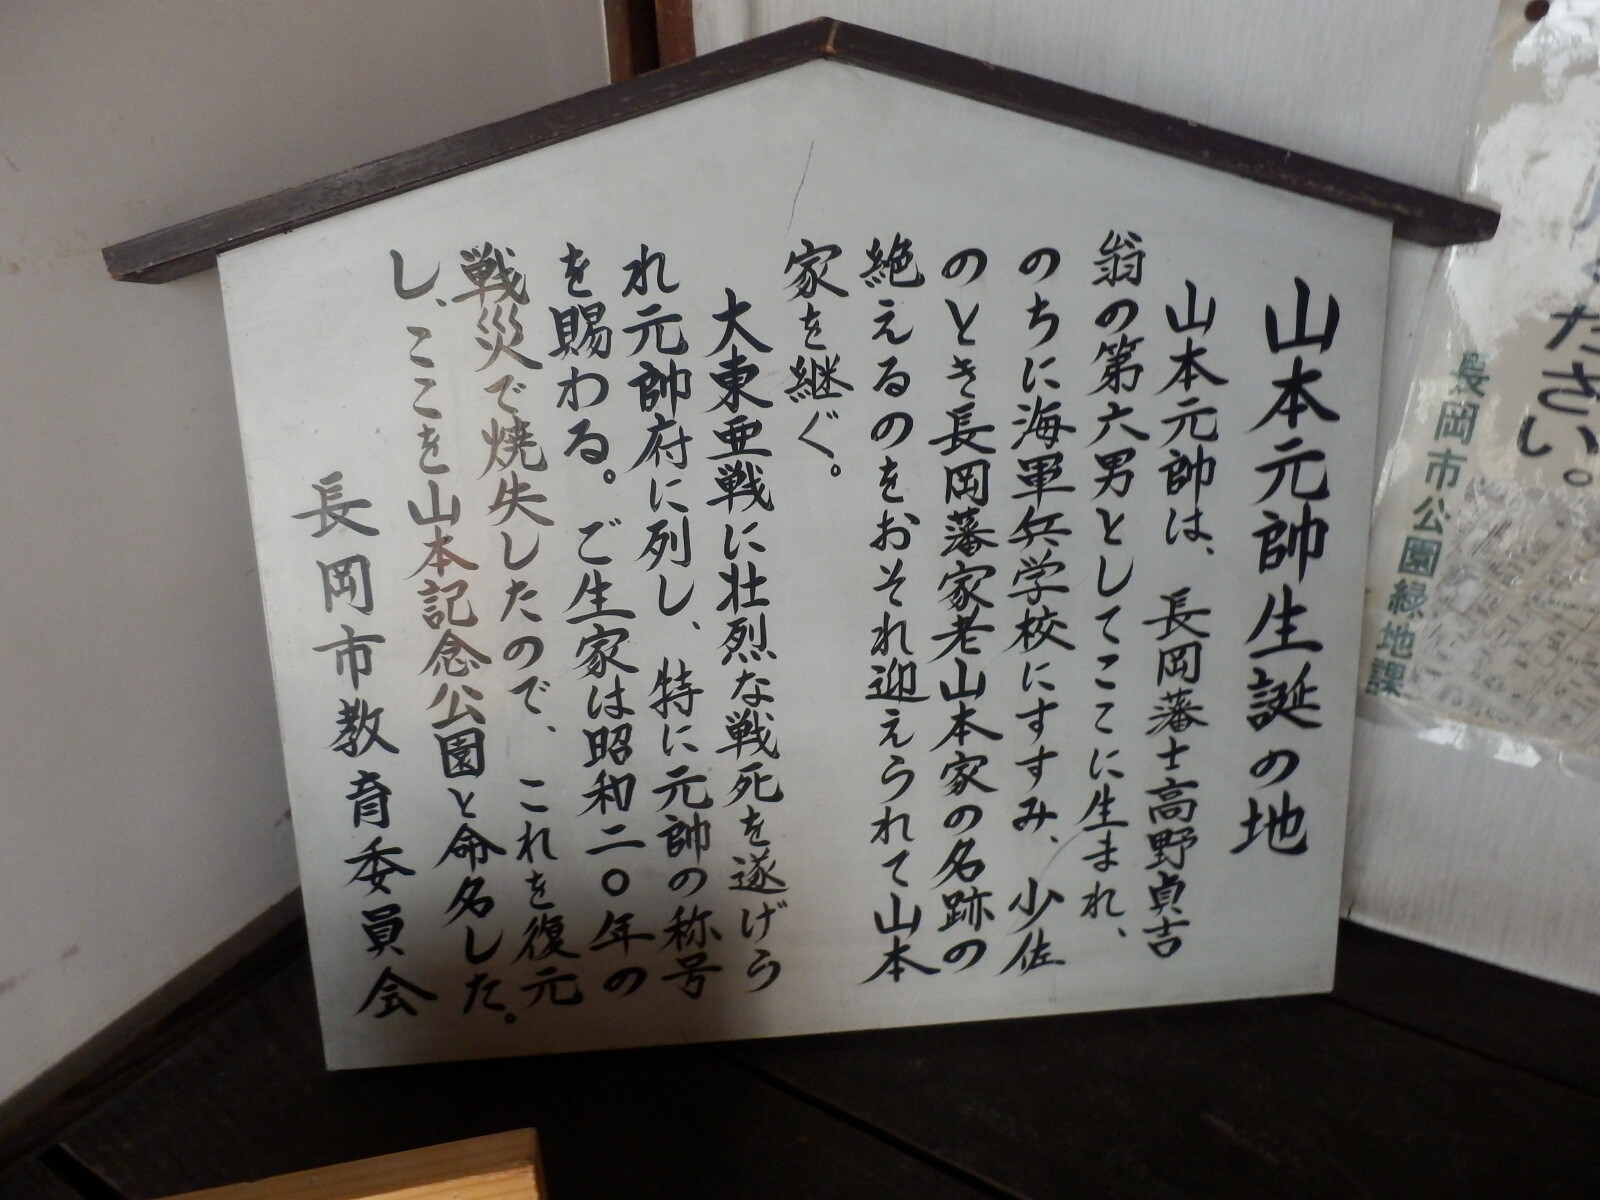 山本元帥生誕の地
山本元帥は、長岡藩士高野貞吉
翁の第六男としてここに生まれ、
のちに海軍兵学校にすすみ、少佐
のとき長岡藩家老山本家の名跡の
絶えるのをおそれ迎えられて山本
家を継ぐ。
大東亜戦に壮烈な戦死を遂げら
れ元帥府に列し、特に元帥の称号
を賜わる。ご生家は昭和二〇年の
戦災で焼失したので、これを復元
し、ここを山本記念公園と命名した。
長岡市教育委員会
ださい。
長岡市公園緑地課